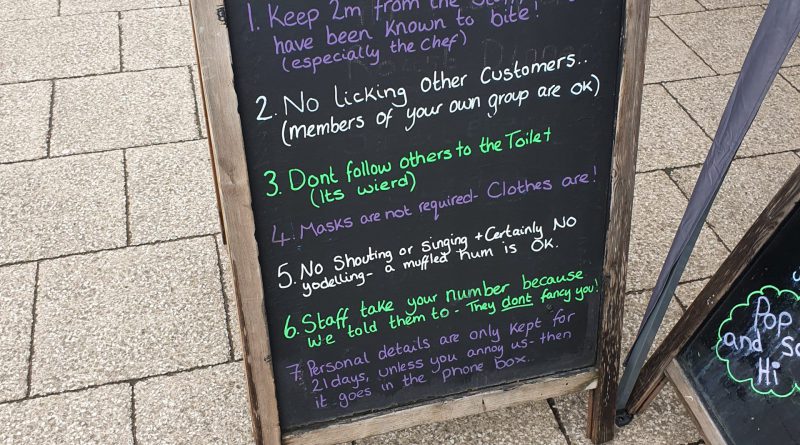 1. Keep 2m from the Staff
have been known to bite!
(especially the Chef)
2. No licking other Customers..
(members of your own group are ok)
3. Dont follow others to the Toilet
(Its wierd)
4. Masks are not required- Clothes are!
5. No Shouting or Singing + Certainly NO
yodelling- a muffled hum is OK.
6. Staff take your number because
we told them to - They dont fancy you!
7. Personal details are only kept for
21 days, unless you annoy us- then
it goes in the phone box.
Pop
and s
Hi